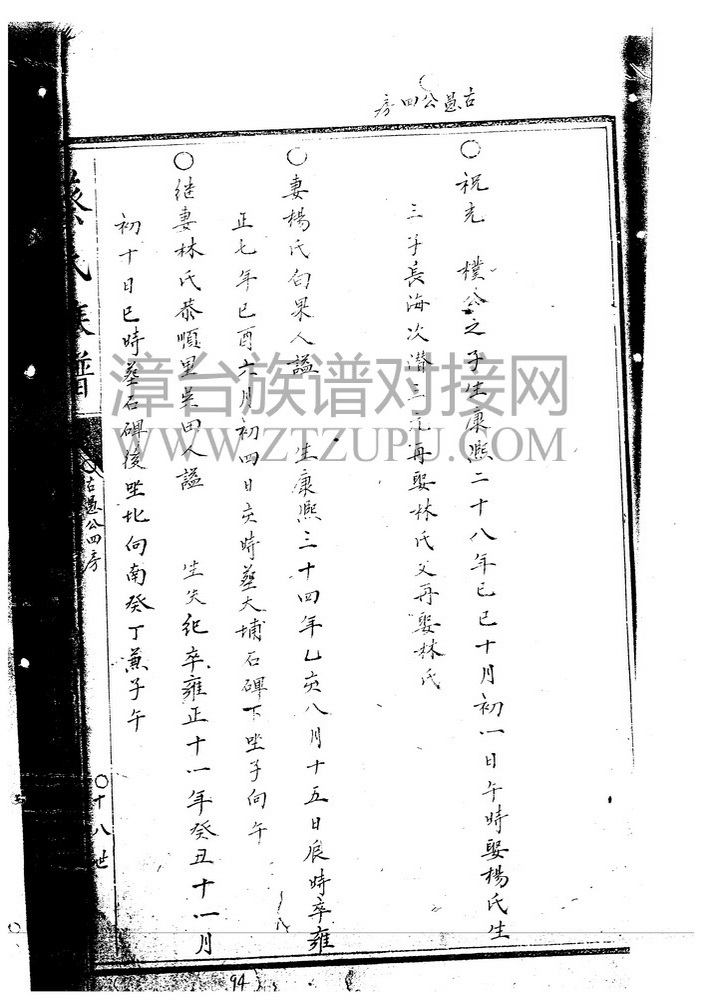 古愚公四房
〇祝光 樸公之子生康熙二十八年已巳十月初一日午時娶楊氏生
三子長海次潛三元再娶林氏父再娶林氏
〇妻楊氏旬果人謚 生康熙三十四年乙亥八月十五日辰時卒雍
正七年已酉六月初四日亥時葬大埔石碑下坐子向午
〇继妻林氏恭順里吴田人謚 生失紀卒雍正十一年癸丑十一月
初十日巳時葬石碑後坐北向南癸丁兼子午
蔡氏族譜
古愚公四房
〇十八世
94
漳台族谱对接网
WWW.ZTZUPU.COM